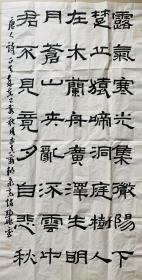 露氣寒光集微陽下
楚丘猿啼洞庭樹人
在木蘭舟廣澤生明
月蒼山夾亂流雲中
君不見竟夕自悲秋
唐人詩一首